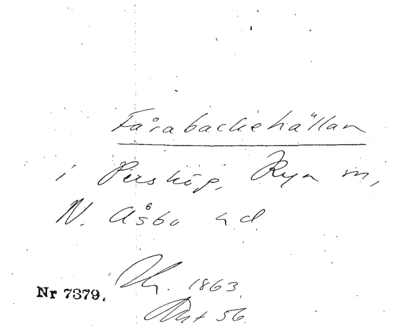 Fårabackehällan
i Perstorp, Rya m,
N. Åsbo hd.
Uh. 1863.
Nr 7379.
56.